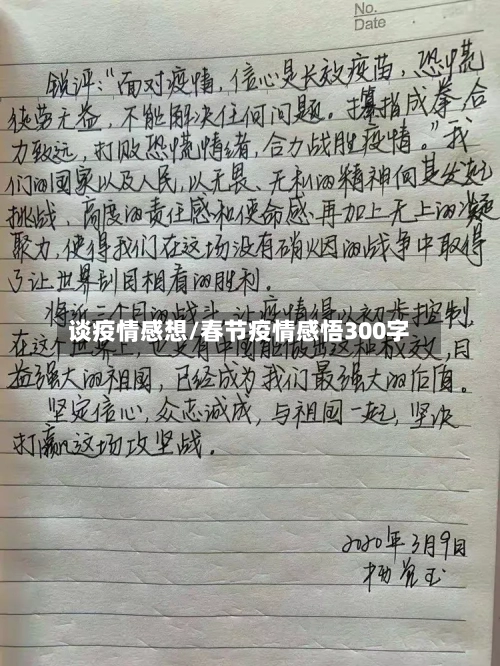 No.
Date
锐评:"面对疫情,信心是长效疫苗,恐慌
徒劳无益,不能解决任何问题。攥指成拳,合
力致远,打败恐慌情绪,合力战胜疫情。"我
们的国家以及人民,以无畏、无私的精神向其发起
挑战,高度的责任感和使命感,再加上无上的凝
聚力,使得我们在这场没有硝火因的战争中取得
了让世界刮目相看的胜利。
将近三个月的战斗,让疫情得以初步控制,
谈疫情感想/春节疫情感悟300字
在这个世界上,也只有中国能做出这种成效,日
益强大的祖国,已经成为我们最强大的后盾。
坚定信心,众志诚成,与祖国一起,坚决
打赢这场攻坚战。
2020年3月9日
杨
玉